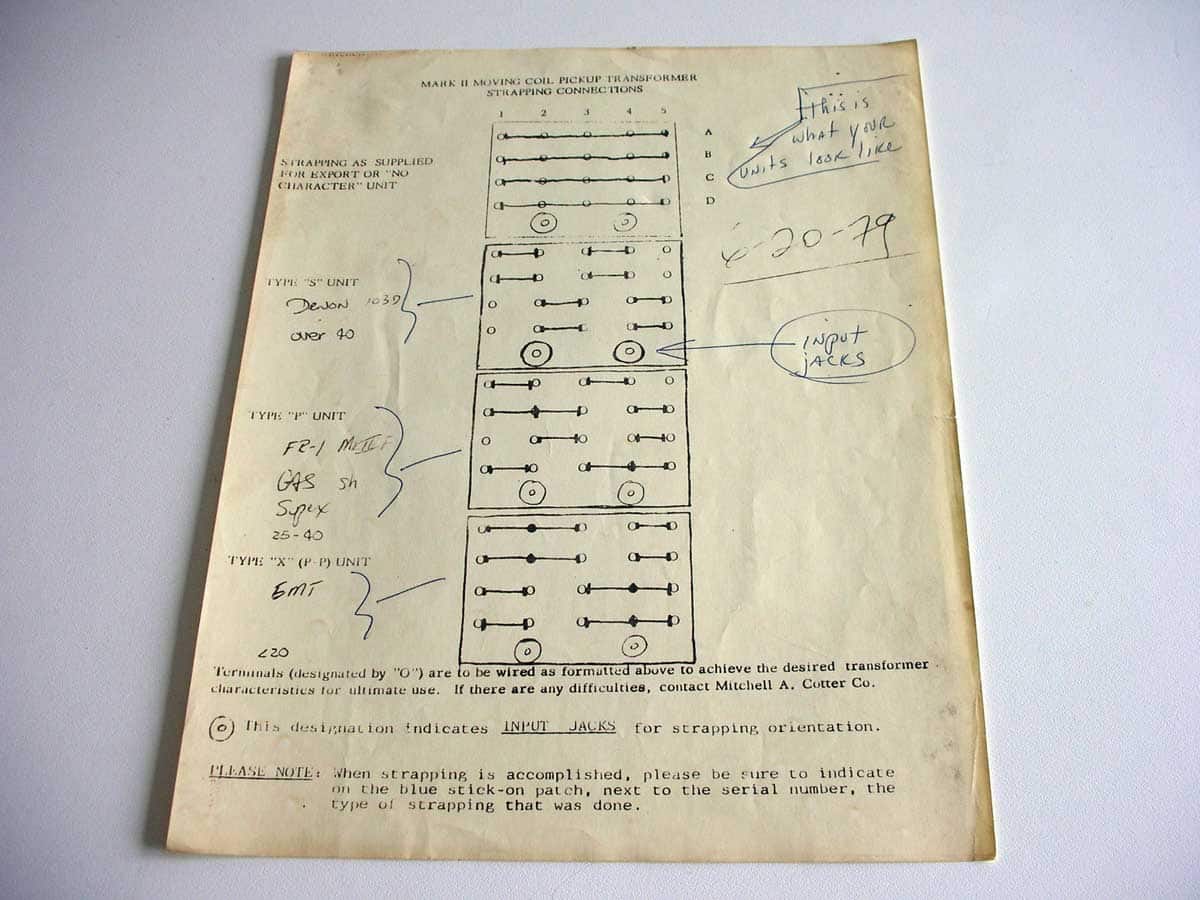 MARK II MOVING COIL PICKUP TRANSFORMER
STRAPPING CONNECTIONS
1 2 3 4 5
A
B
C
D
This is
what your
units look like
STRAPPING AS SUPPLIED
FOR EXPORT OR "NO
CHARACTER" UNIT
6-20-79
TYPE "S" UNIT
Denon 103D
over 40
input
jacks
TYPE "P" UNIT
FR-1
GAS
25-40
TYPE "X" (P-P) UNIT
EMT
<20
Terminals (designated by "O") are to be wired as formatted above to achieve the desired transformer
characteristics for ultimate use. If there are any difficulties, contact Mitchell A. Cotter Co.
This designation indicates INPUT JACKS for strapping orientation.
PLEASE NOTE: When strapping is accomplished, please be sure to indicate
on the blue stick-on patch, next to the serial number, the
type of strapping that was done.